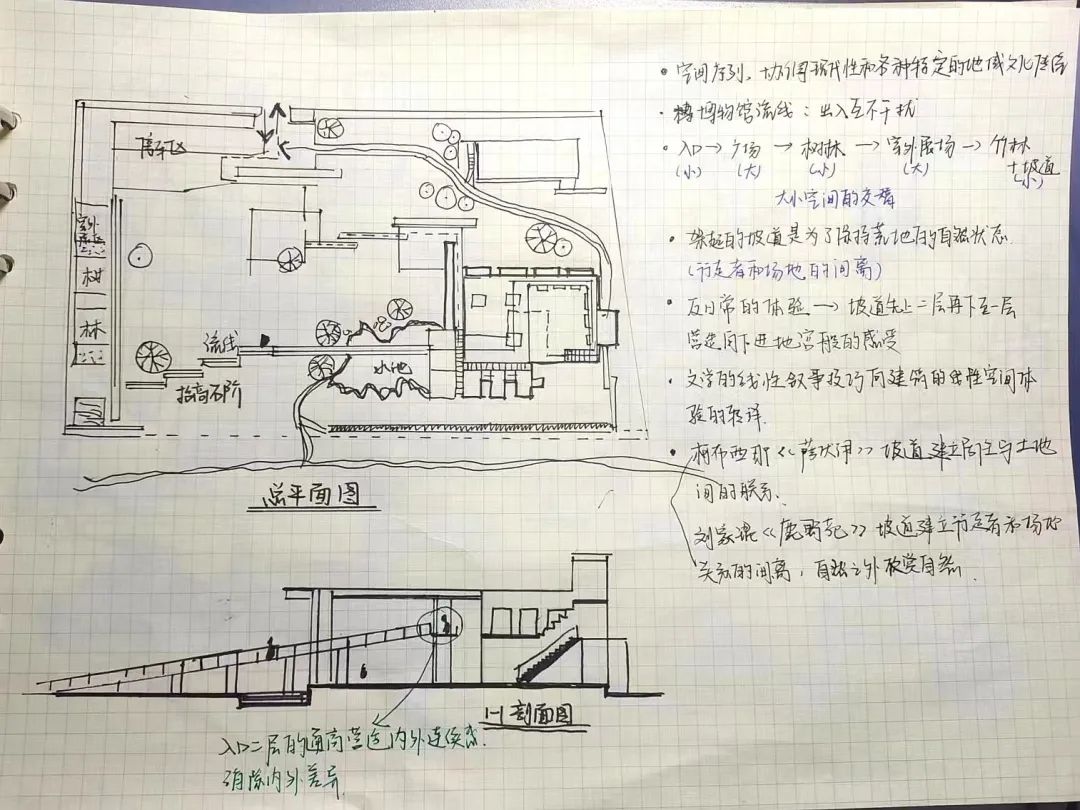 • 空间序列、协调现代性和各种特定的地域文化
• 博物馆流线：出入互不干扰
• 入口→广场→树林→室外展场→竹林
+坡道
(小) (大) (小) (大) (小)
大小空间的交替
• 架起的坡道是为了保持荒地的自然状态.
(行走者和场地的间离)
• 反日常的体验 → 坡道先上二层再下至一层
营造向下进地宫般的感受
• 文学的线性叙事技巧向建筑的线性空间体
验的转译.
• 柯布西耶《萨伏伊》坡道建立居住与土地
间的联系.
刘家琨《鹿野苑》坡道建立行走者和场地
关系的间离，自然之外欣赏自然.
停车区
室外
树
林
流线
抬高石阶
水池
总平面图
1-1剖面图
入口二层的通高营造内外连续感.
消除内外差异.